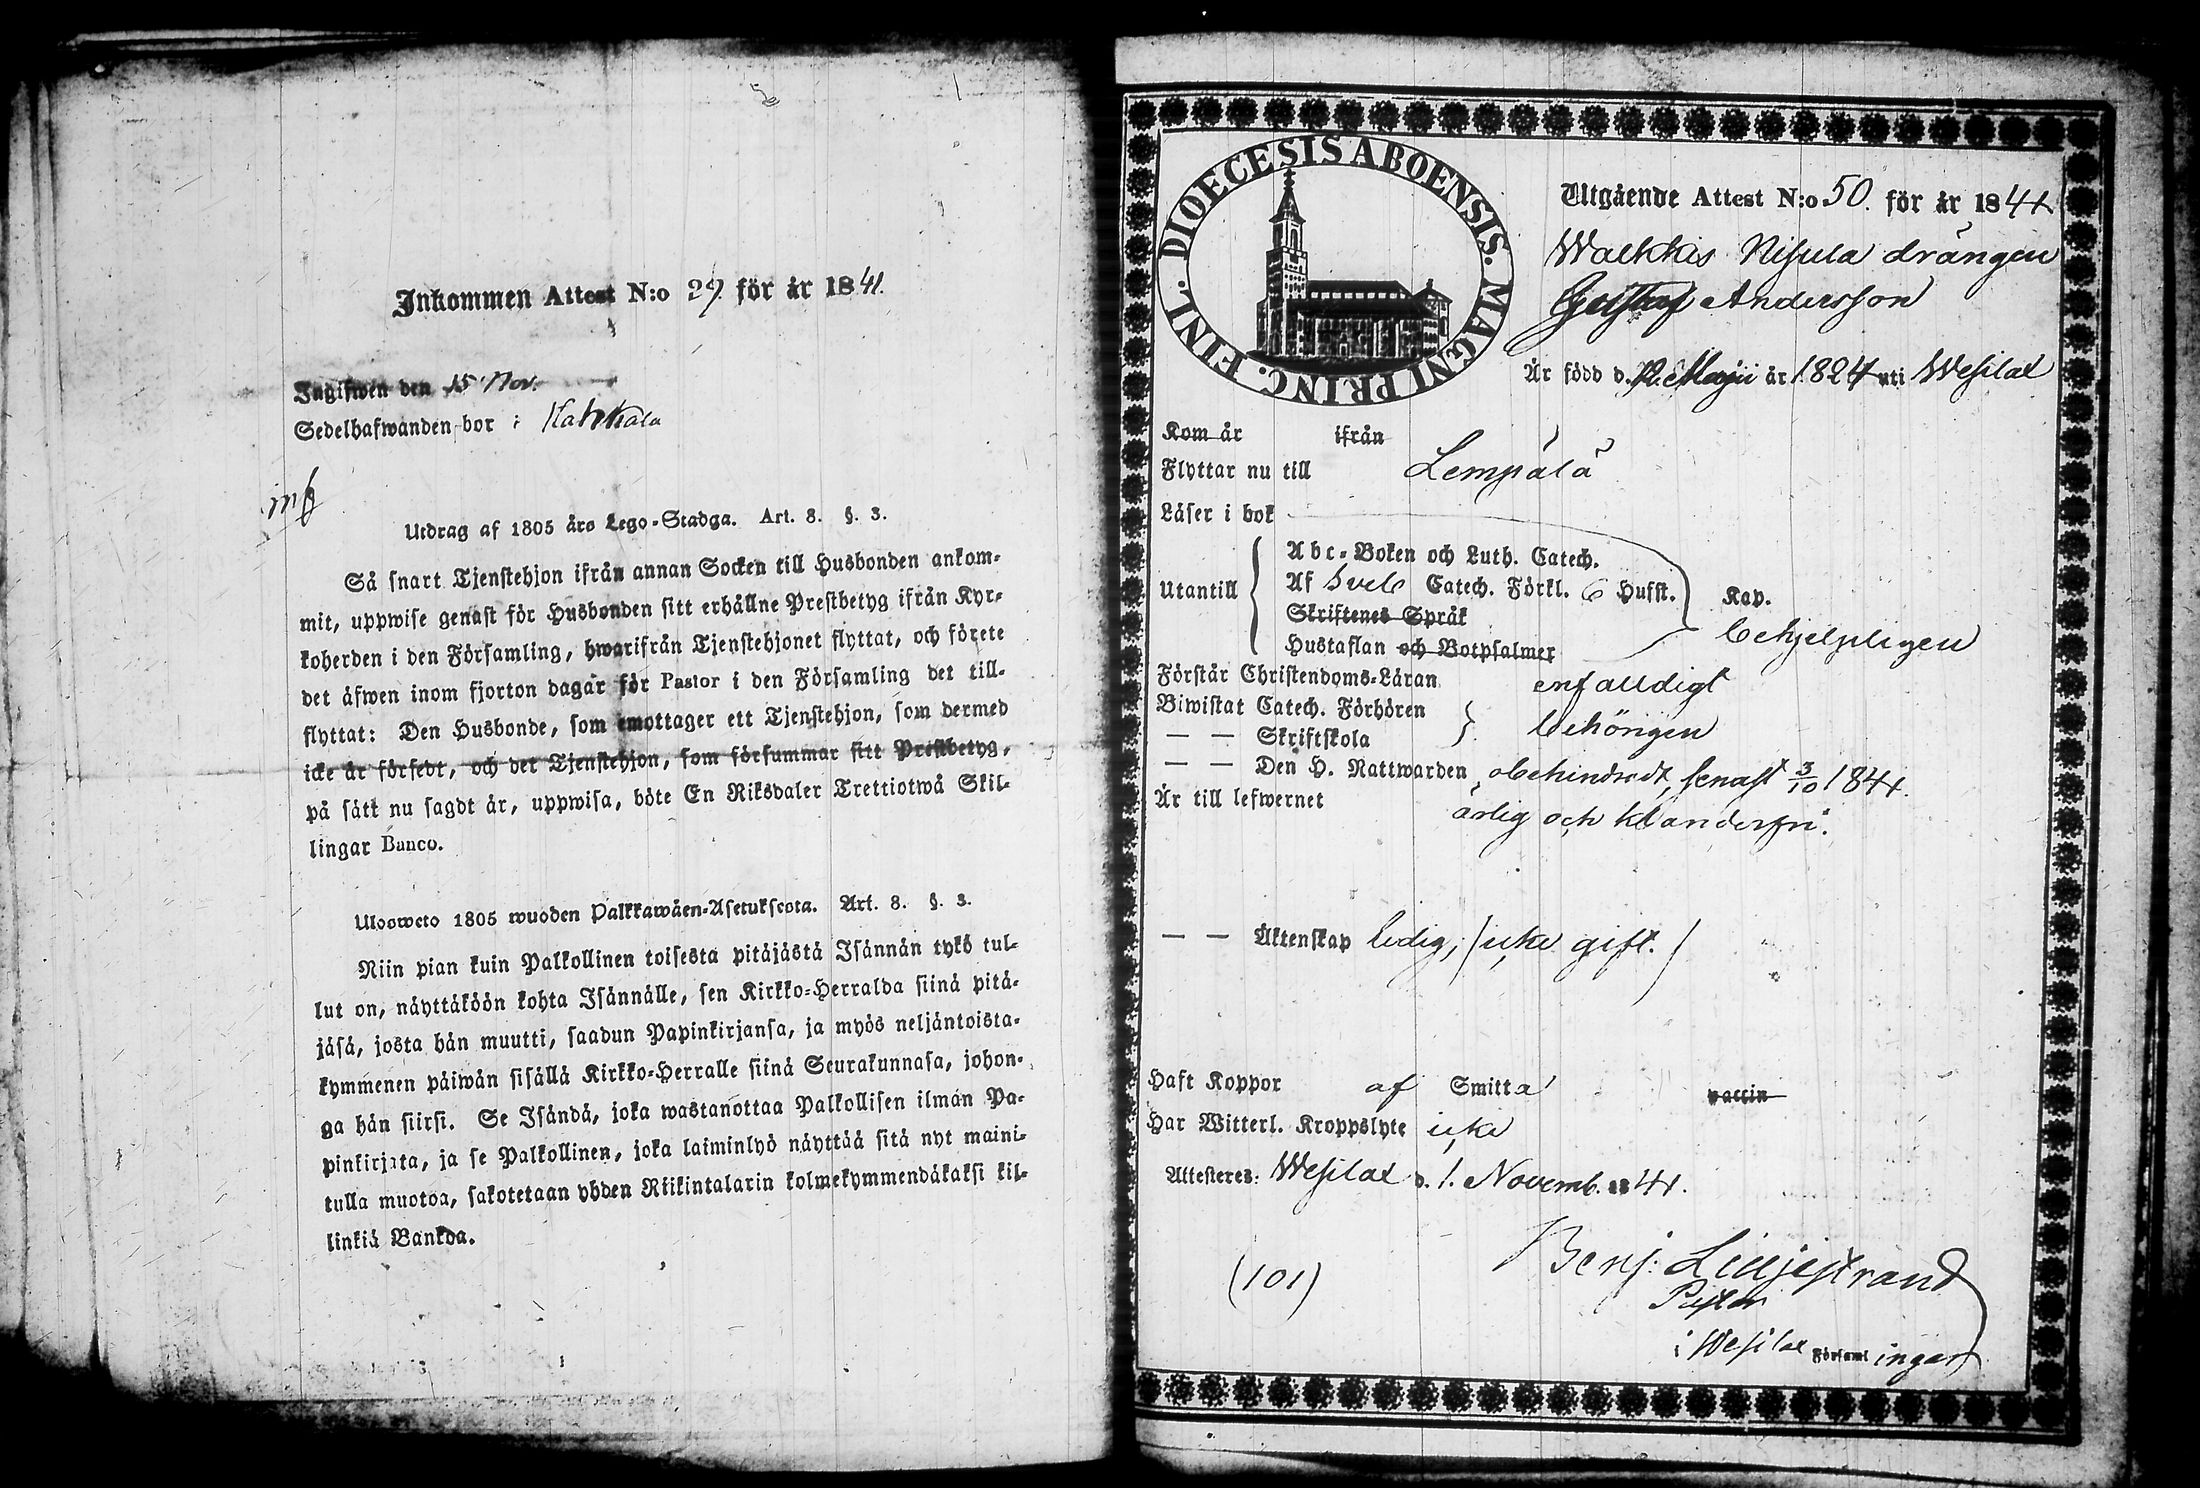 Inkommen Attest N:o 29. för år 1841.
Ingifwen den 15 Nov.
Sedelhafwanden bor i Kahkala
Utdrag af 1805 års Lego-Stadga. Art. 8. §. 3.
Så snart Tjenstehjon ifrån annan Socken till Husbonden ankom-
mit, uppwise genast för Husbonden sitt erhållne Prestbetyg ifrån Kyr-
koherden i den Församling, hwarifrån Tjenstehjonet flyttat, och förete
det äfwen inom fjorton dagar för Pastor i den Församling det till-
flyttat: Den Husbonde, som emottager ett Tjenstehjon, som dermed
icke är försedt, och det Tjenstehjon, som försummar sitt Prestbetyg,
på sätt nu sagdt är, uppwisa, böte En Riksdaler Trettiotwå Skil-
lingar Banco.
Ulosweto 1805 wuoden Palkkawäen-Asetuksesta. Art. 8. §. 3.
Niin pian kuin Palkollinen toisesta pitäjästä Isännän tykö tul-
lut on, näyttäköön kohta Isännälle, sen Kirkko-Herralda siinä pitä-
jäsä, josta hän muutti, saadun Papinkirjansa, ja myös neljäntoista-
kymmenen päiwän sisällä Kirkko-Herralle siinä Seurakunnasa, johon-
ga hän siirsi. Se Isändä, joka wastanottaa Palkollisen ilman Pa-
pinkirjata, ja se Palkollinen, joka laiminlyö näyttää sitä nyt maini-
tulla muotoa, sakotetaan yhden Riikintalarin kolmekymmendäkaksi kil-
linkiä Bankoa.
DIOECESIS ABOENSIS. MAGNI PRINC. FINL.
Utgående Attest N:o 50. för år 1841
Walkkis Nisula drängen
Gustaf Andersson
Är född d. 12. Maji år 1824 uti Wesilax
Kom år ifrån
Flyttar nu till Lempälä
Läser i bok
Utantill
Abc-Boken och Luth. Catech.
Af Sveb Catech. Förkl. 6 Hufst. Kap.
Skriftenes Språk
Hustaflan och Botpsalmer
behjelpligen
Förstår Christendoms-Läran enfaldigt
Biwistat Catech. Förhören
— — Skriftskola behörigen
— — Den H. Nattwarden obehindradt, senast 3/10 1841.
Är till lefwernet ärlig och klanderfri.
— — Äktenskap ledig, (icke gift.)
Haft Koppor af Smitta vaccin
Har Witterl. Kroppslyte icke
Attesteres: Wesilax d. 1. Novemb. 1841.
(101)
Benj: Liljestrand
Pastor
i Wesilax Församlingar